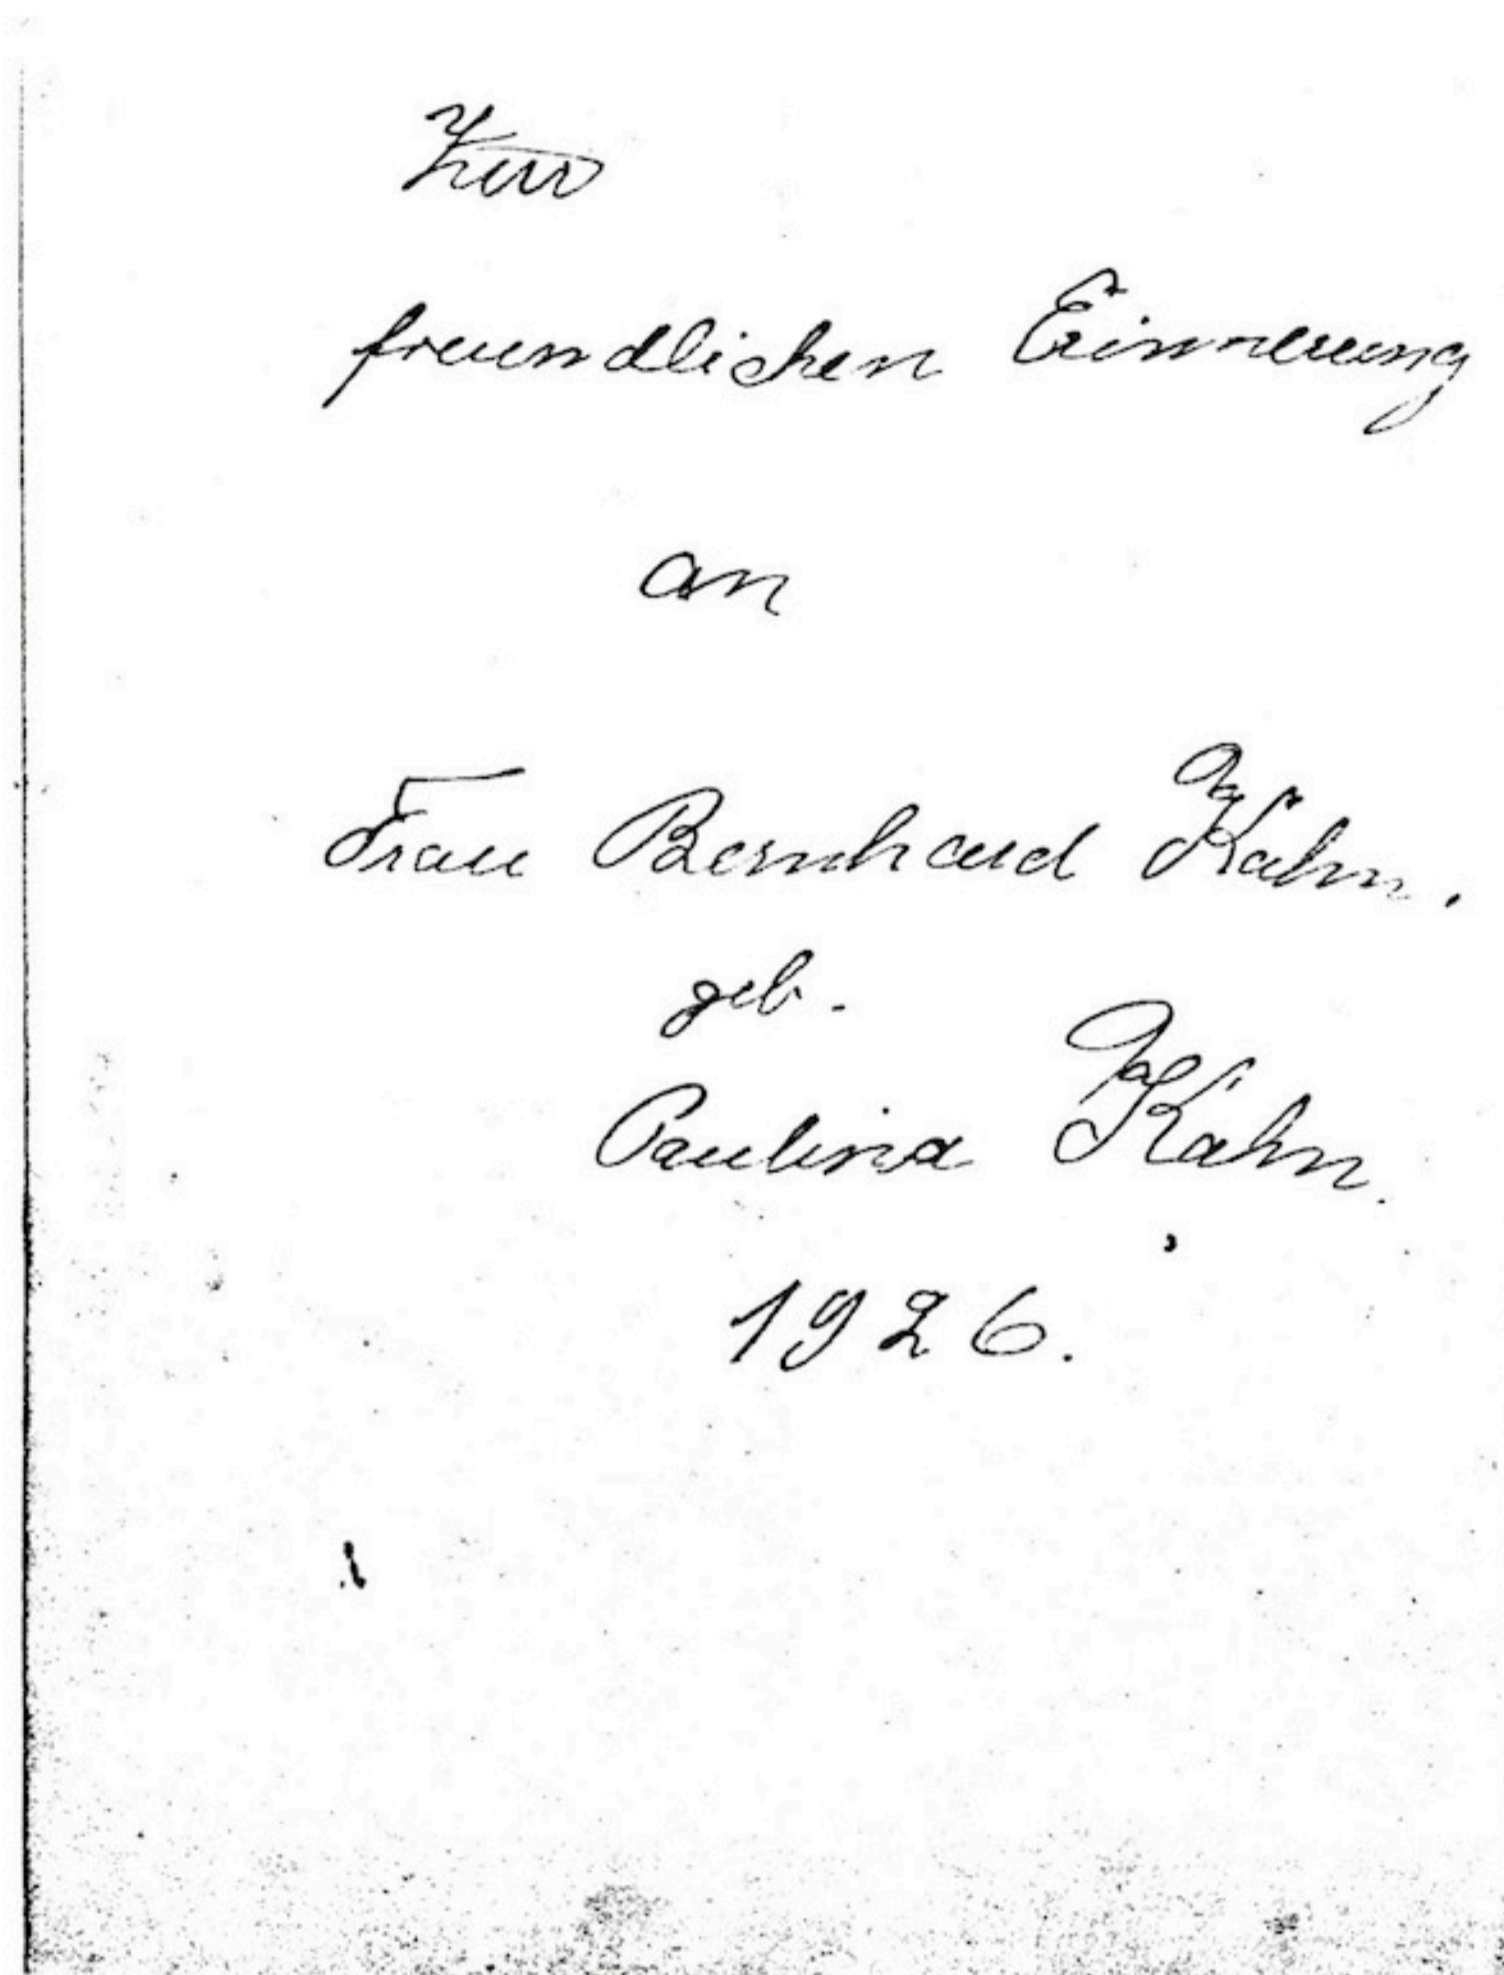 Zur
freundlichen Erinnerung
an
Frau Bernhard Kahn.
geb.
Paulina Kahn.
1926.